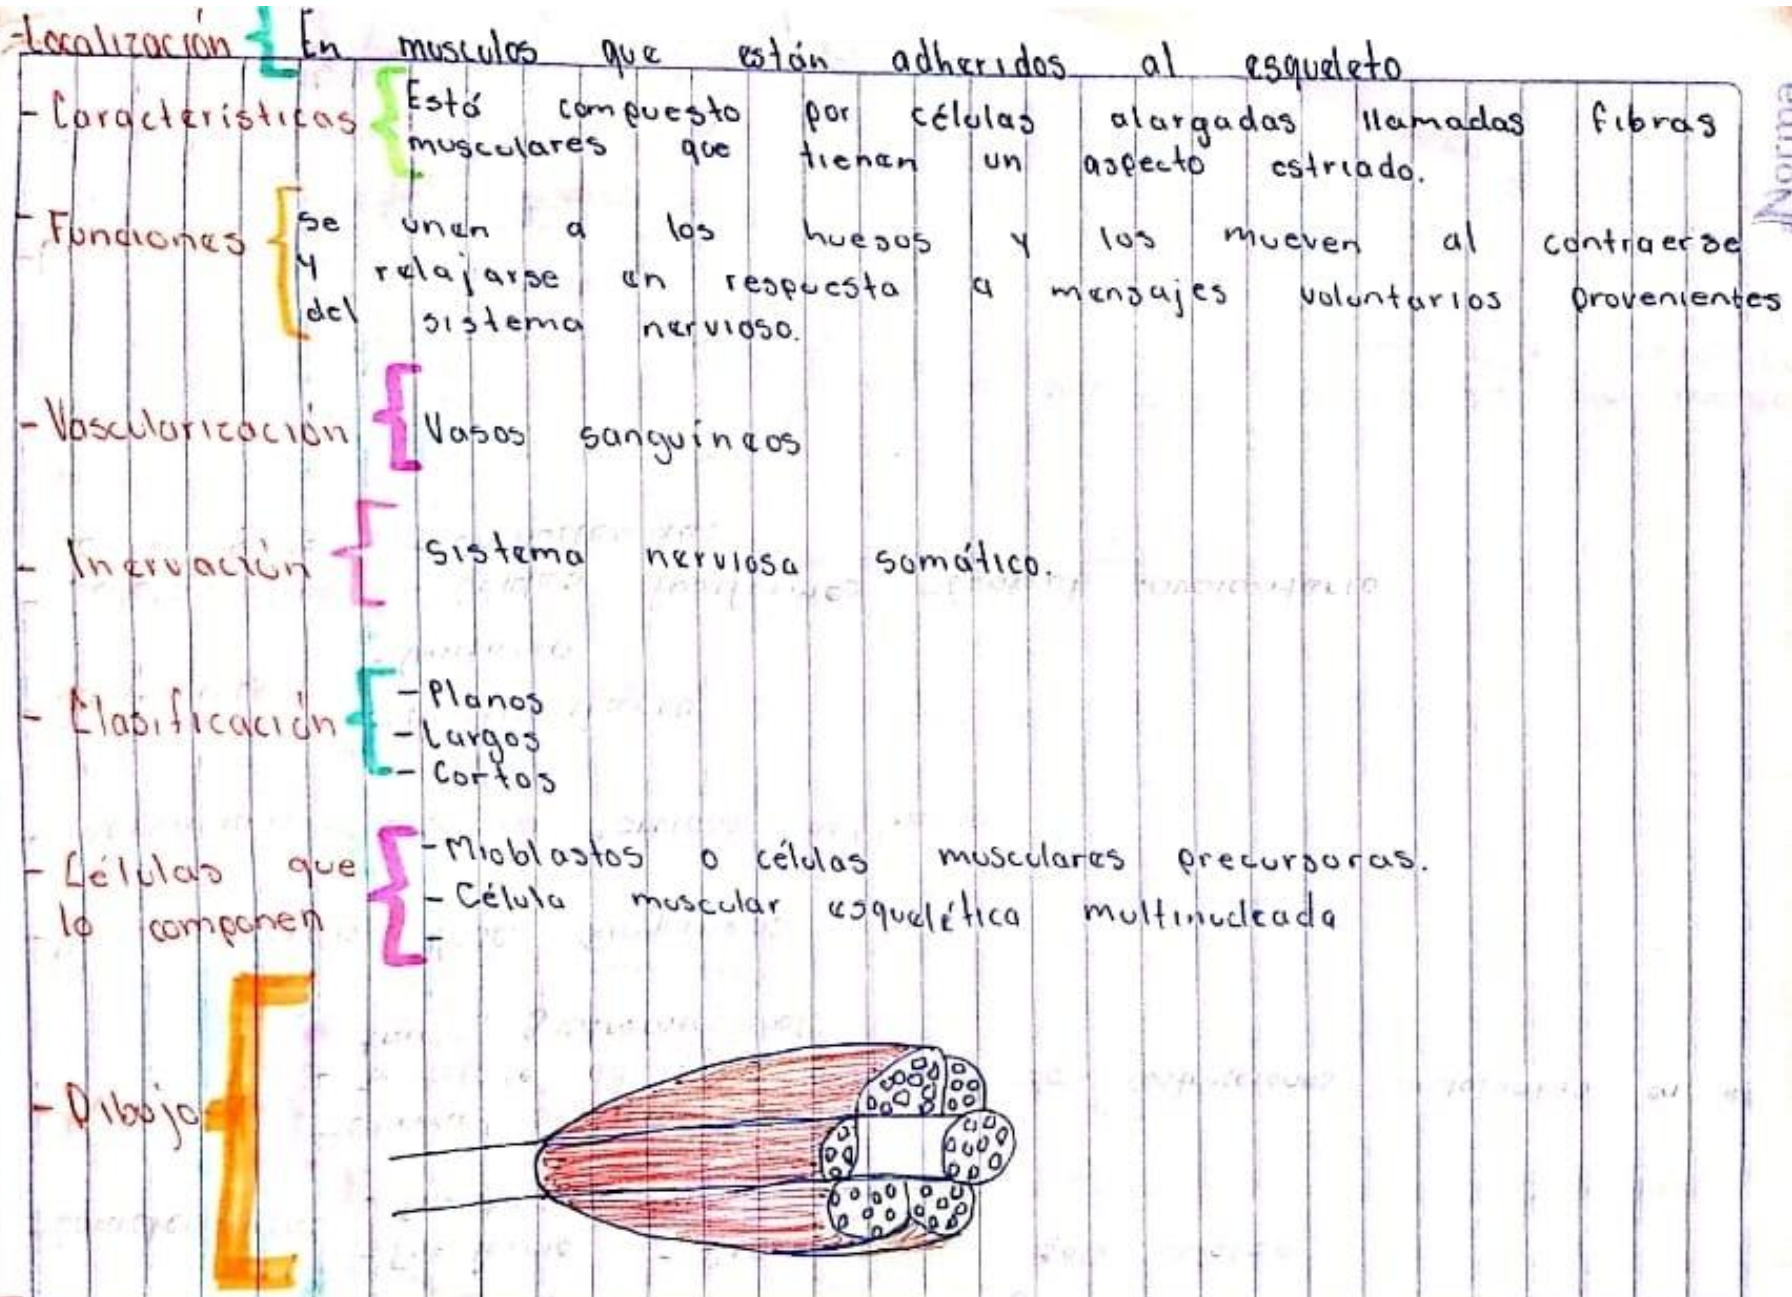 -Localización { En musculos que están adheridos al esqueleto
- Características { Está compuesto por células alargadas llamadas fibras
musculares que tienen un aspecto estriado.
- Funciones { se unen a los huesos y los mueven al contraerse
y relajarse en respuesta a mensajes voluntarios provenientes
del sistema nervioso.
- Vascularización { Vasos sanguíneos
- Inervación { Sistema nerviosa somático.
- Clasificación { - Planos
- Largos
- Cortos
- Células que { - Mioblastos o células musculares precursoras.
lo componen - Célula muscular esquelética multinucleada
-
- Dibujo {
Norma